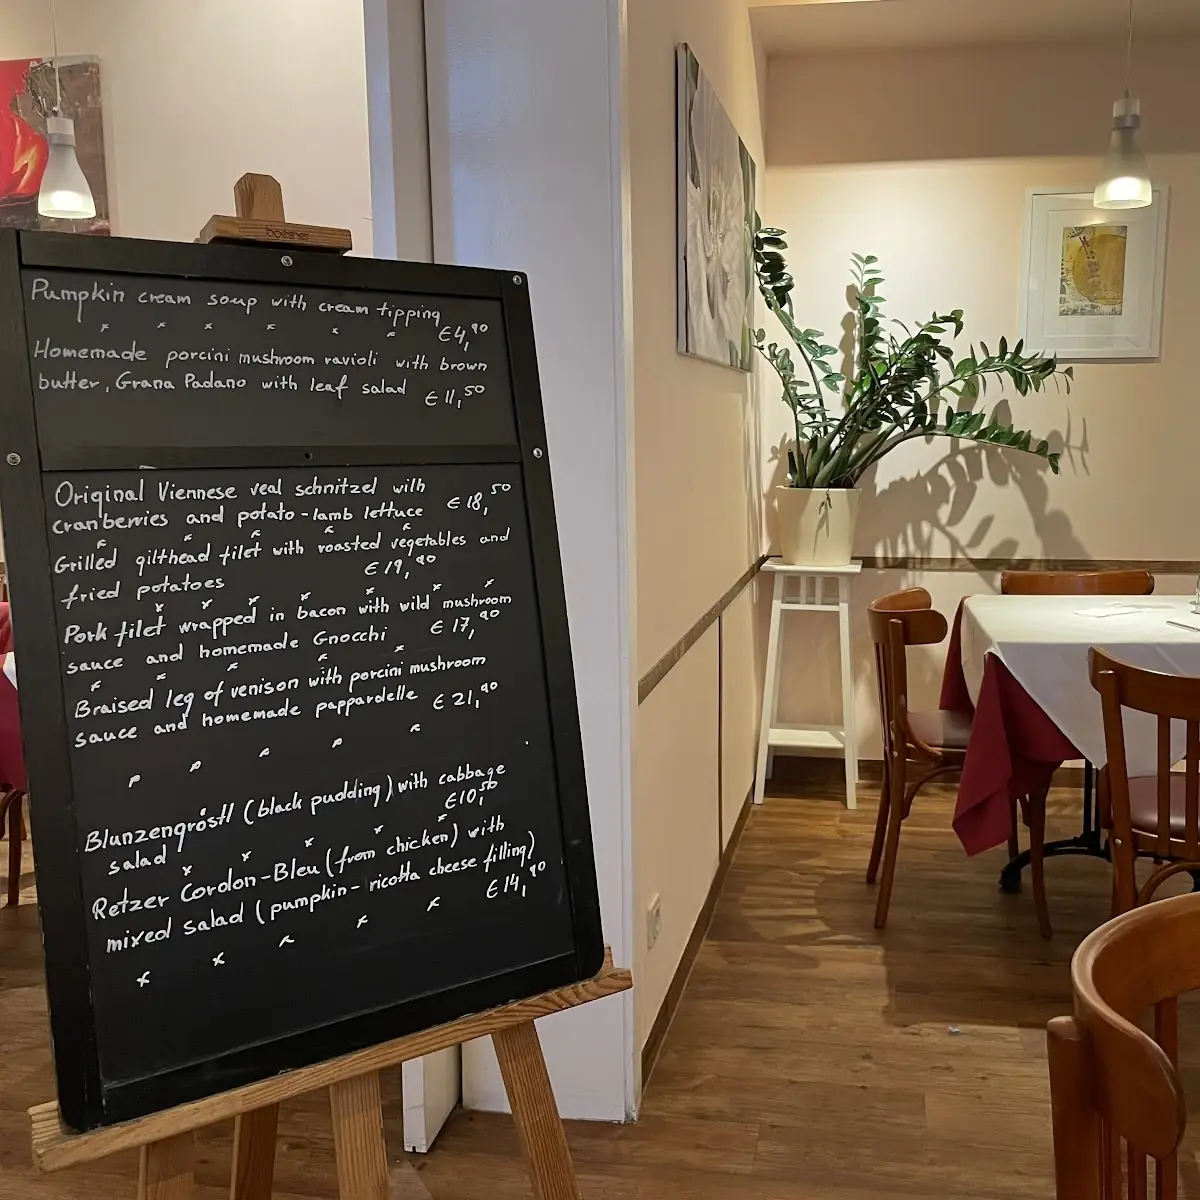 Pumpkin cream soup with cream tipping
€4,90
Homemade porcini mushroom ravioli with brown
butter, Grana Padano with leaf salad €11,50
Original Viennese veal schnitzel with
cranberries and potato-lamb lettuce €18,50
Grilled gilthead filet with roasted vegetables and
fried potatoes €19,90
Pork filet wrapped in bacon with wild mushroom
sauce and homemade Gnocchi €17,90
Braised leg of venison with porcini mushroom
sauce and homemade pappardelle €21,90
Blunzengröstl (black pudding) with cabbage
salad €10,50
Retzer Cordon-Bleu (from chicken) with
mixed salad (pumpkin-ricotta cheese filling)
€14,90